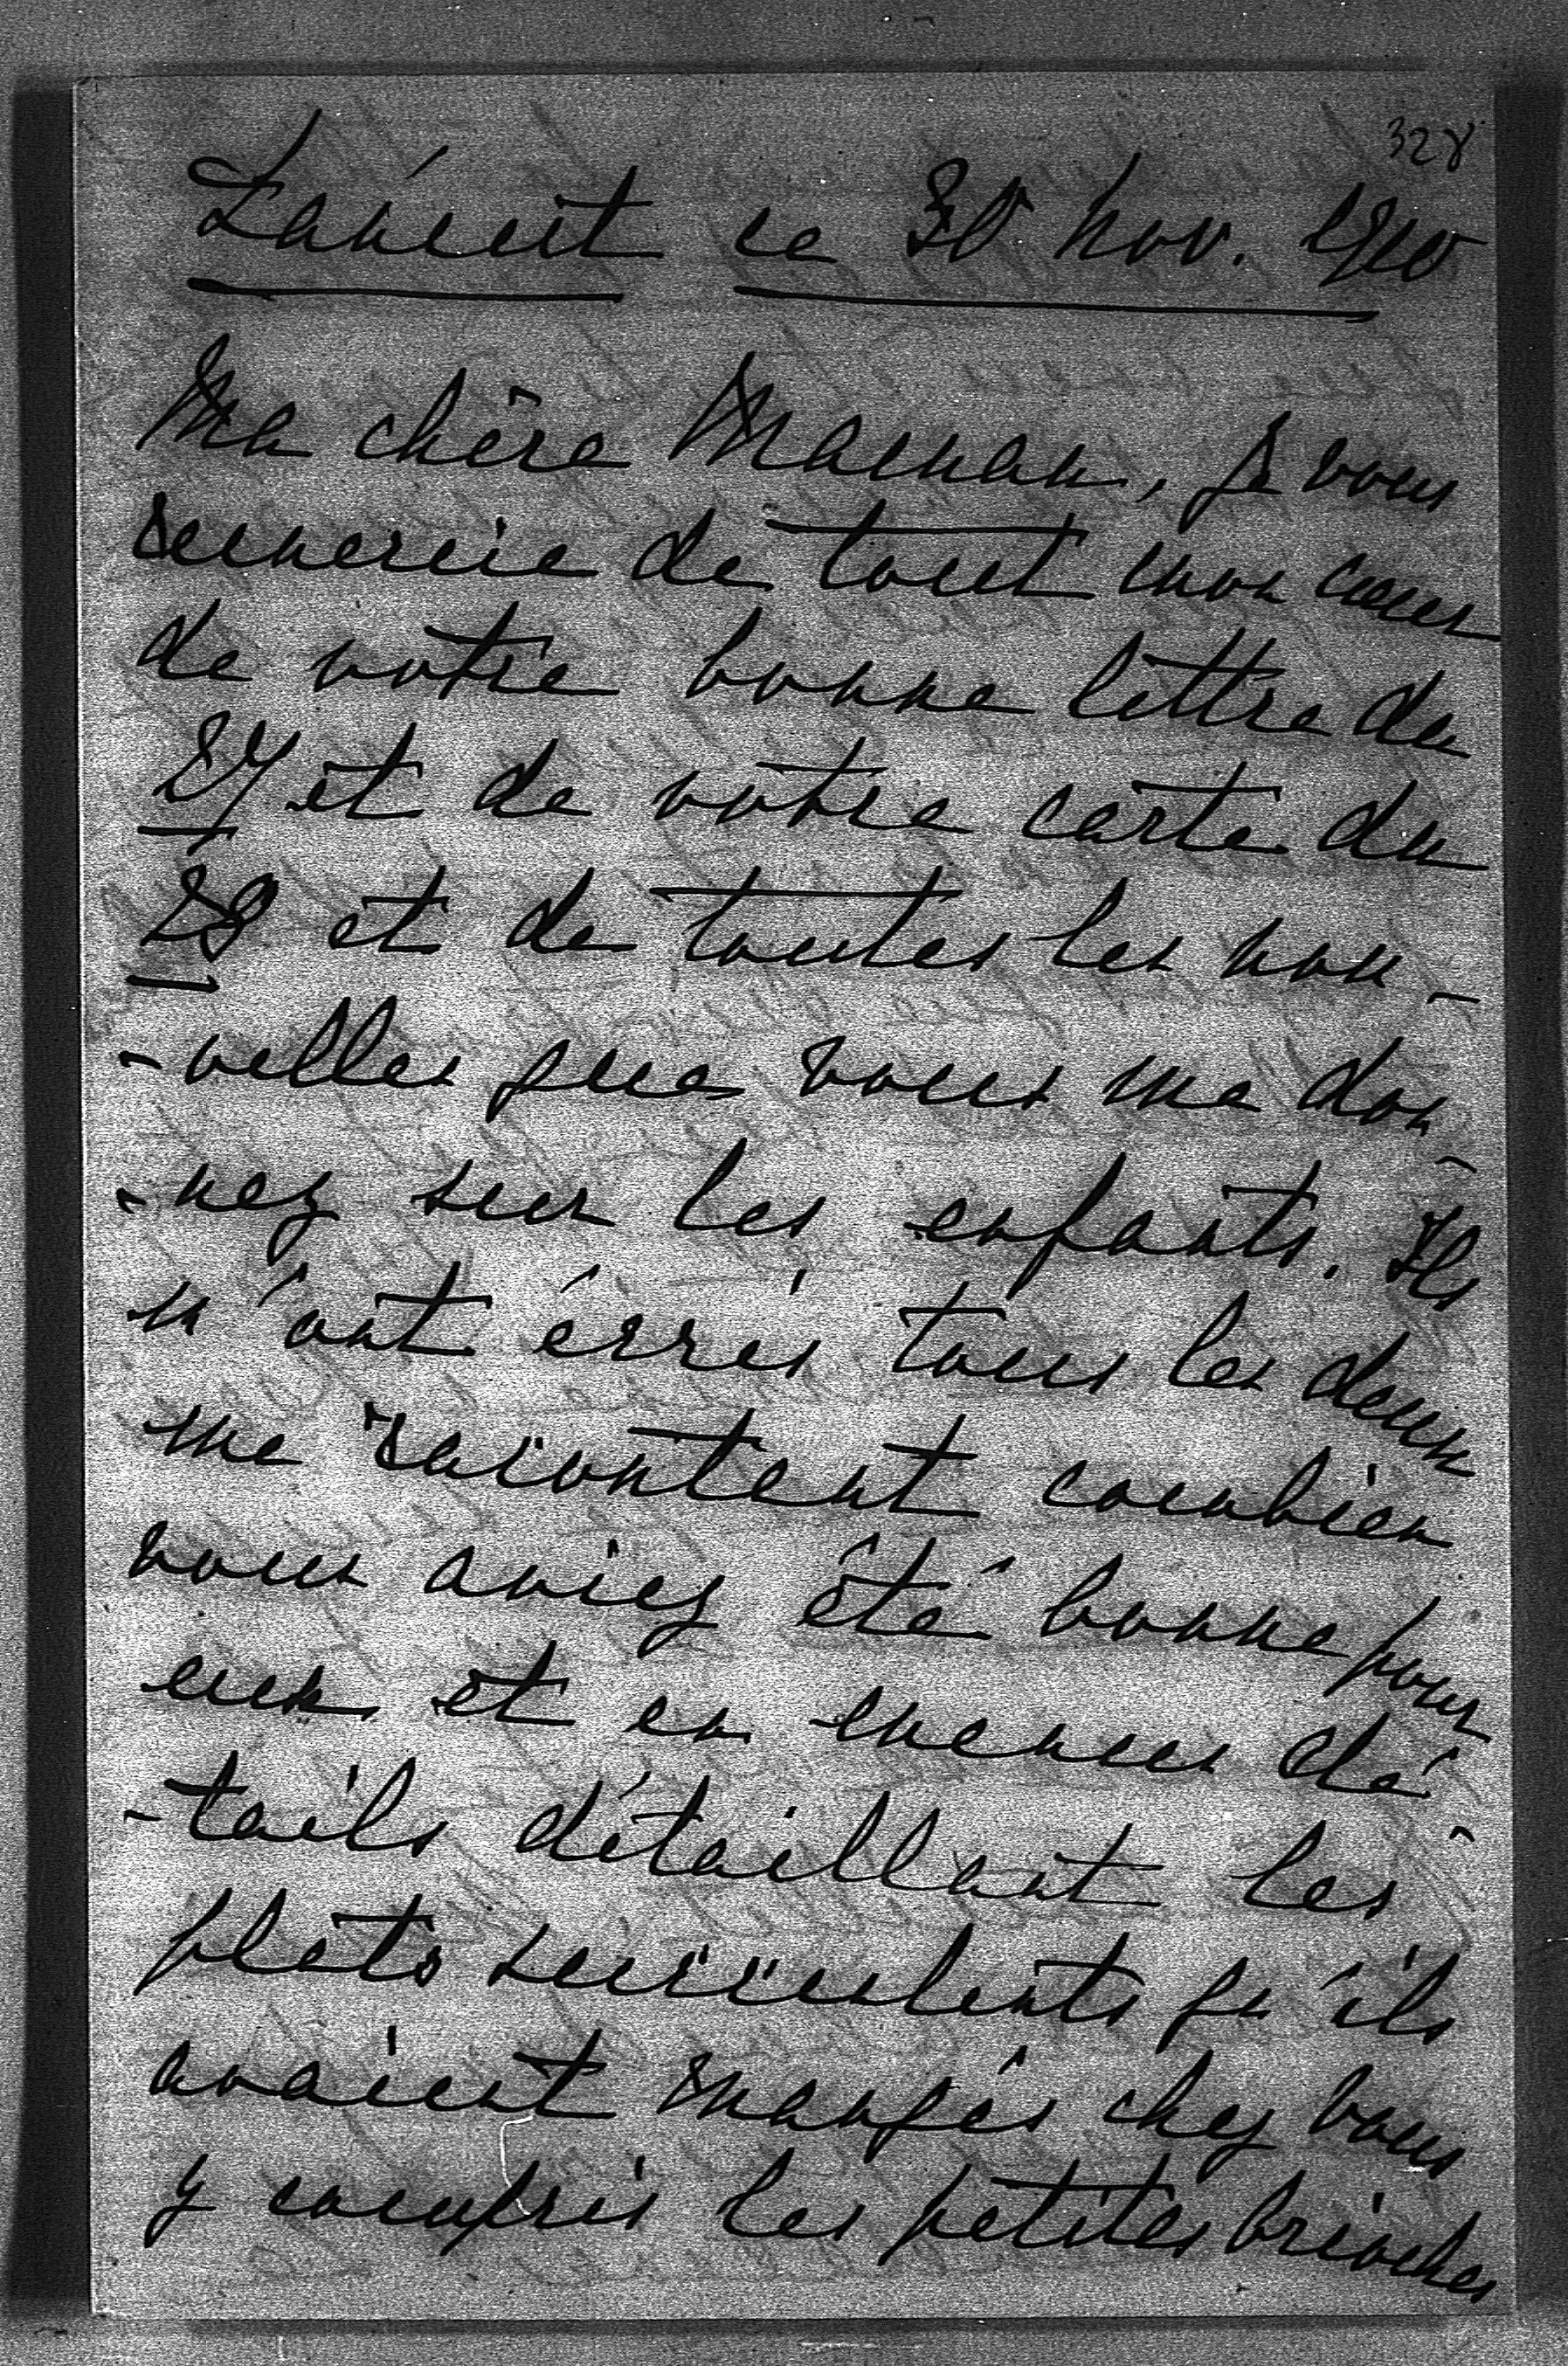 328
Lancut ce 30 Nov. 1910
Ma chère Maman, je vous
remercie de tout mon cœur
de votre bonne lettre du
27 et de votre carte du
28 et de toutes les nou-
-velles que vous me don-
-nez sur les enfants. Ils
m'ont écrit tous les deux
me racontent combien
vous aviez été bonne pour
eux et en menus dé-
-tails détaillant les
plats succulents qu'ils
avaient mangés chez vous
y compris les petites brioches